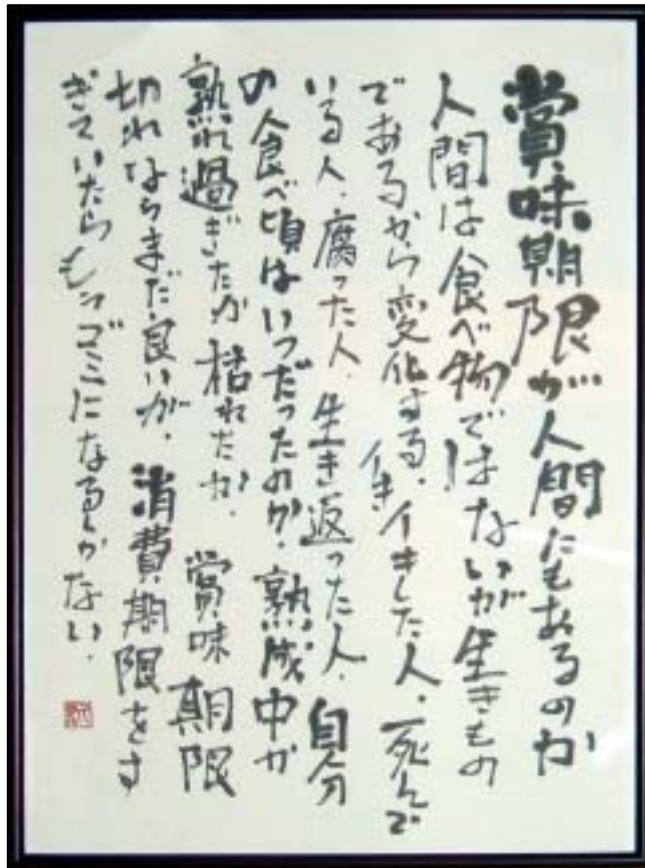 賞味期限が人間にもあるのか
人間は食べ物ではないが生きもの
であるから変化する、イキした人、死んで
いる人、腐った人、生き返った人、自分
の食べ頃はいつだったのか、熟成中か
熟れ過ぎたか枯れたか、賞味期限
切れならまだ良いが、消費期限をす
ぎていたら生ゴミになるしかない、